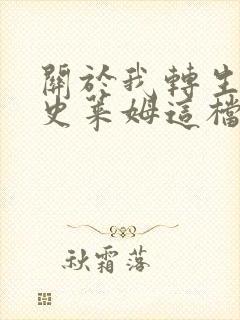 關於我轉生
史萊姆這檔
秋霜落